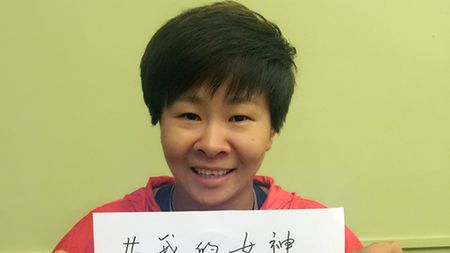 #我的女神